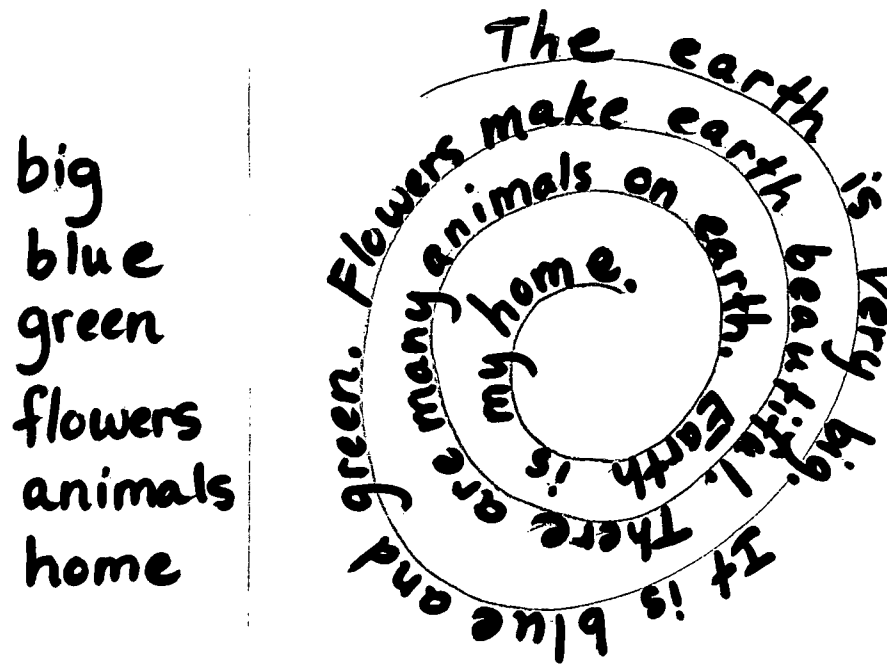 big
blue
green
flowers
animals
home
The earth is very big. It is blue and green. Flowers make earth beautiful. There are many animals on earth. Earth is my home.